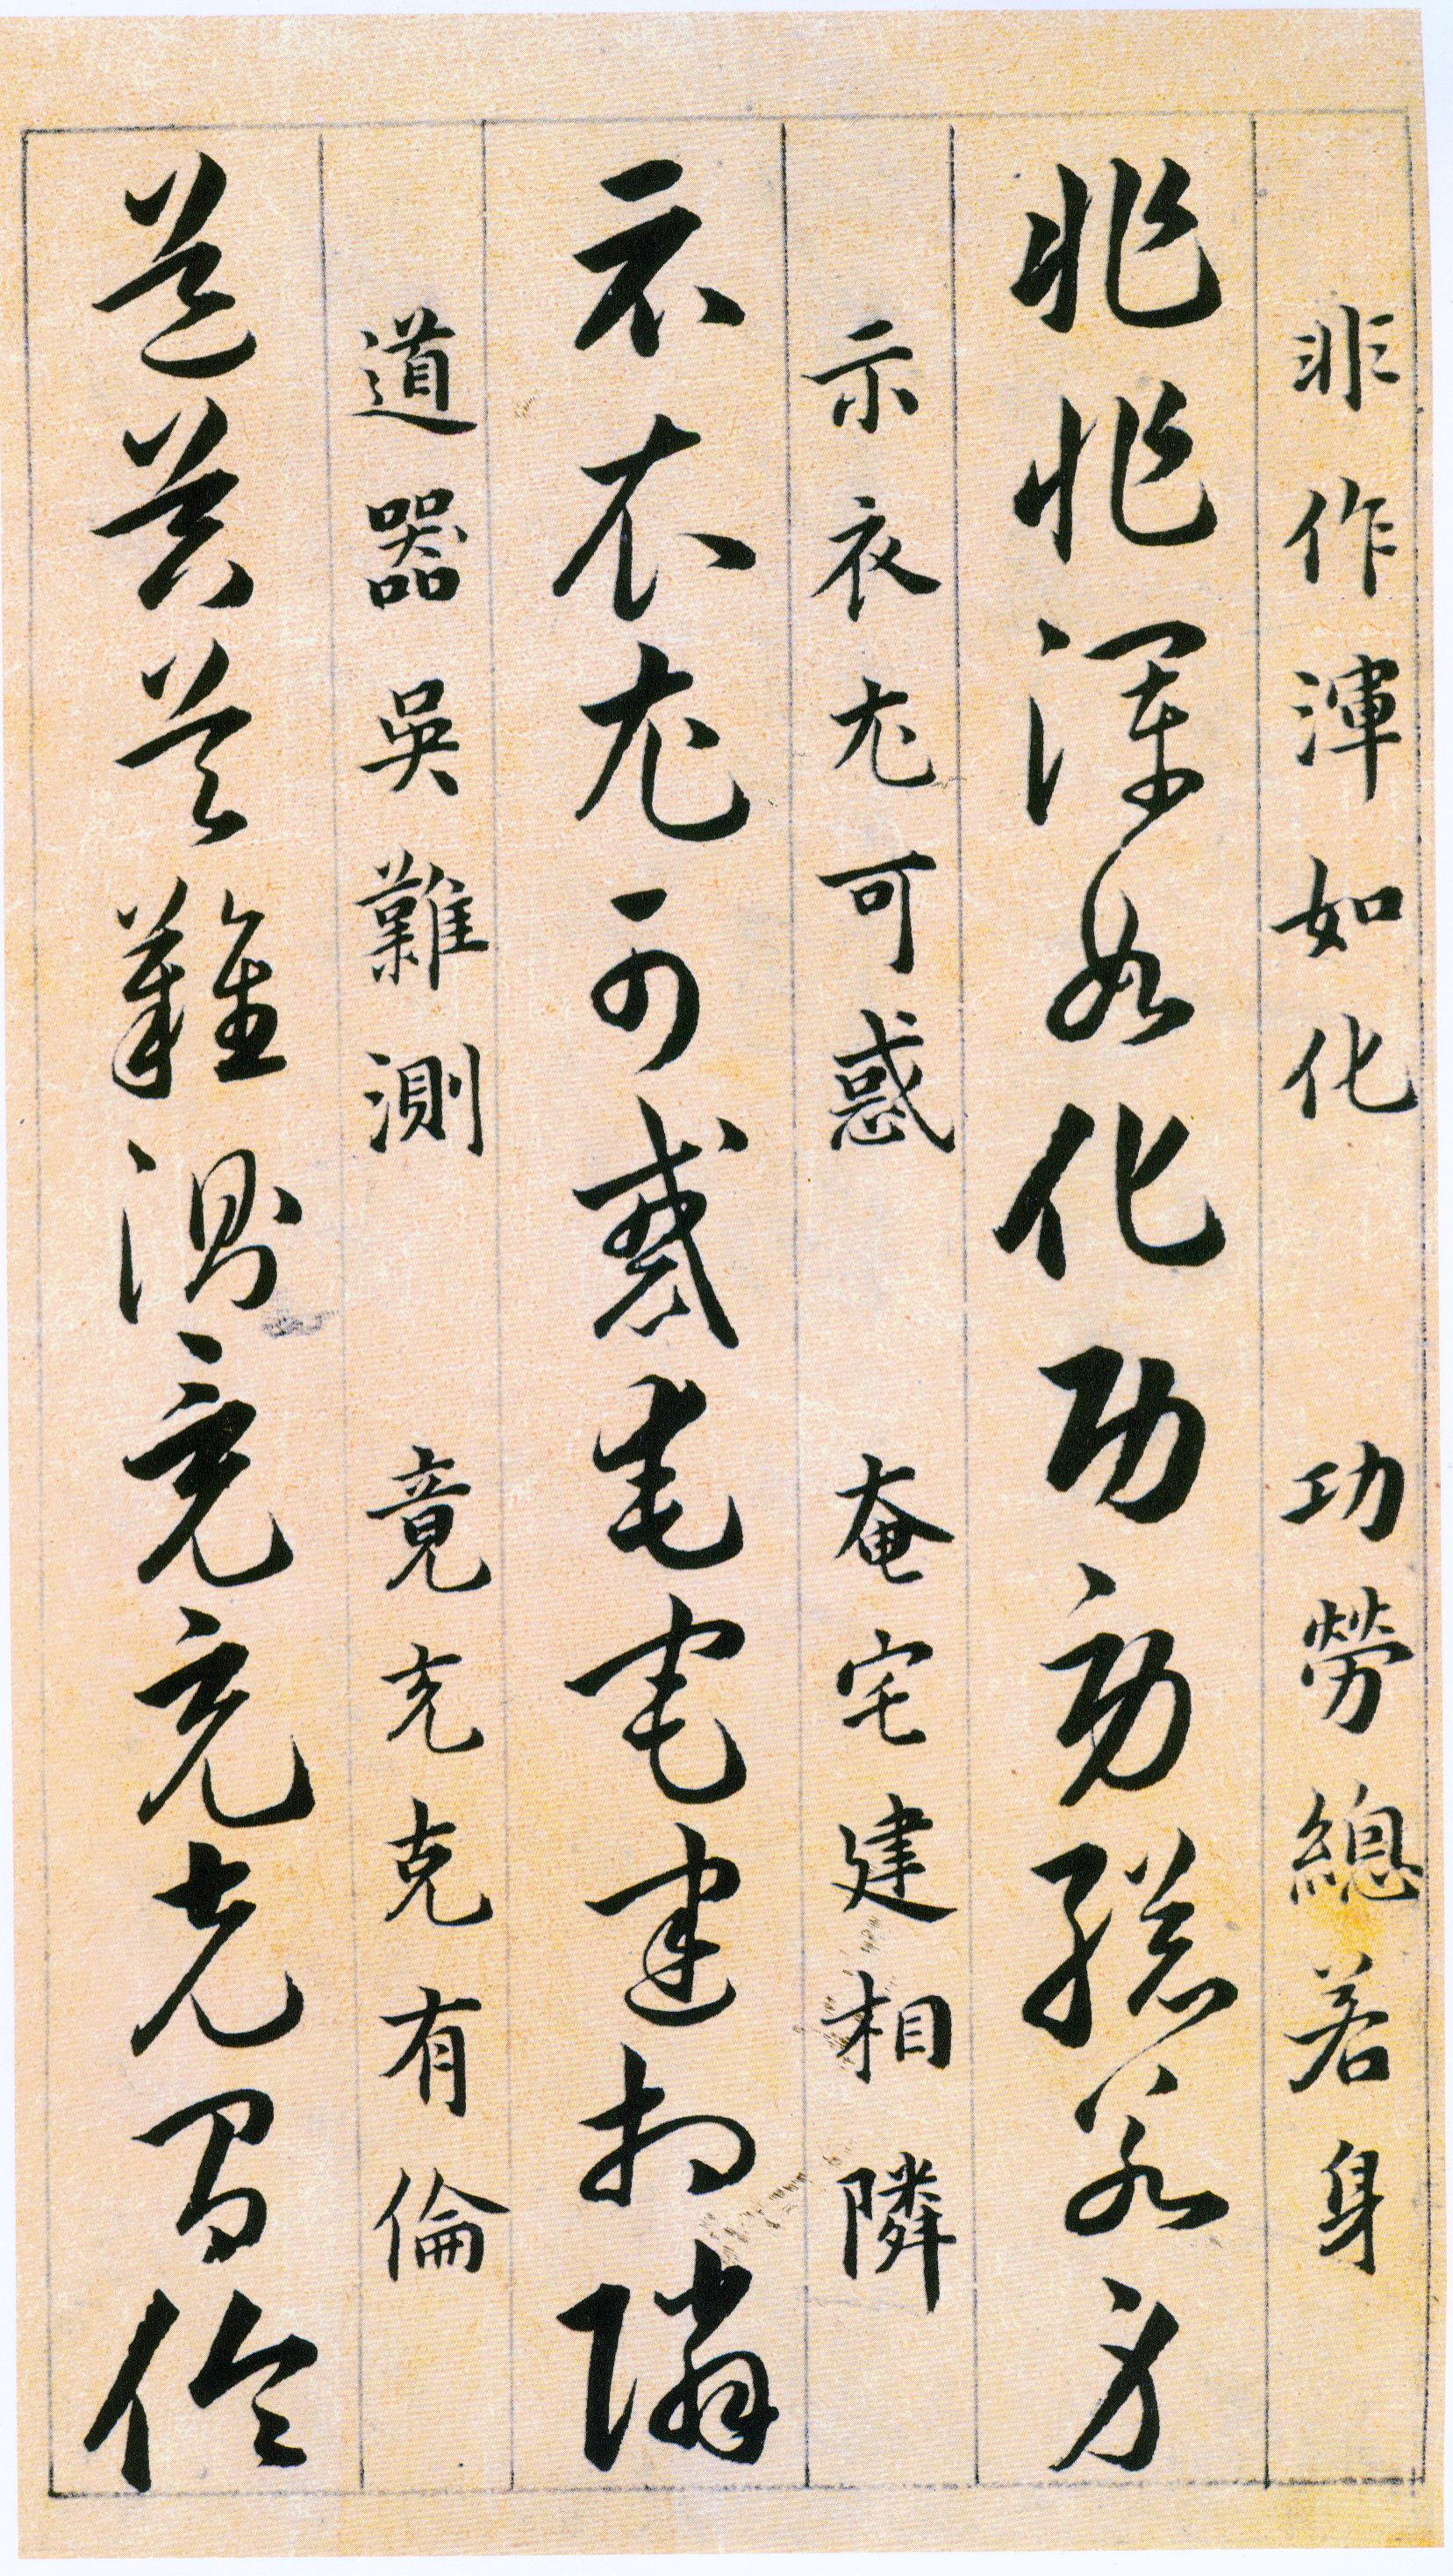 非作渾如化 功勞總若身
非作渾如化功勞總若身
示衣尤可惑 奄宅建相隣
示衣尤可惑奄宅建相隣
道器吳難測 竟充克有倫
道器吳難測竟充克有倫